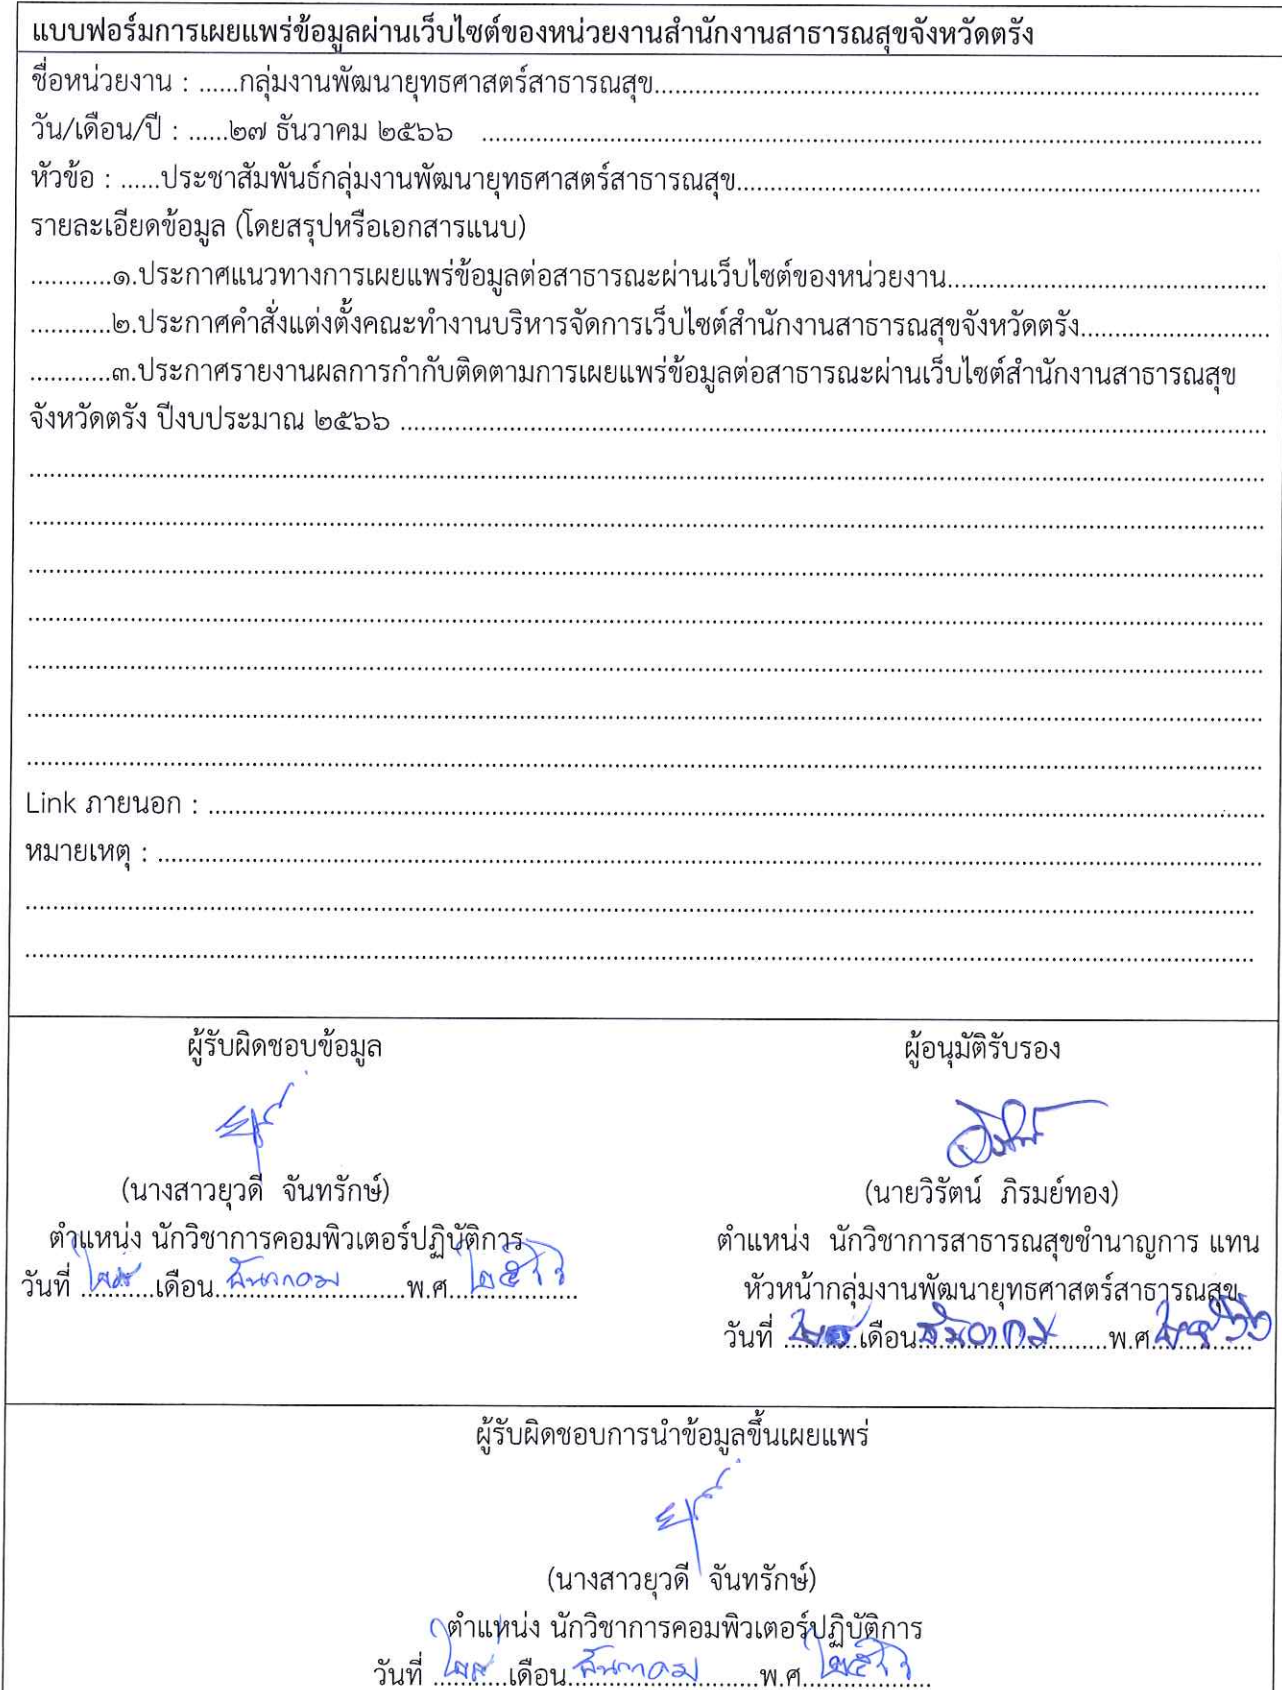 แบบฟอร์มการเผยแพร่ข้อมูลผ่านเว็บไซต์ของหน่วยงานสำนักงานสาธารณสุขจังหวัดตรัง
ชื่อหน่วยงาน : ......กลุ่มงานพัฒนายุทธศาสตร์สาธารณสุข......
วัน/เดือน/ปี : ......๒๗ ธันวาคม ๒๕๖๖ ......
หัวข้อ : ......ประชาสัมพันธ์กลุ่มงานพัฒนายุทธศาสตร์สาธารณสุข......
รายละเอียดข้อมูล (โดยสรุปหรือเอกสารแนบ)
............๑.ประกาศแนวทางการเผยแพร่ข้อมูลต่อสาธารณะผ่านเว็บไซต์ของหน่วยงาน......
............๒.ประกาศคำสั่งแต่งตั้งคณะทำงานบริหารจัดการเว็บไซต์สำนักงานสาธารณสุขจังหวัดตรัง......
............๓.ประกาศรายงานผลการกำกับติดตามการเผยแพร่ข้อมูลต่อสาธารณะผ่านเว็บไซต์สำนักงานสาธารณสุข
จังหวัดตรัง ปีงบประมาณ ๒๕๖๖ ......
Link ภายนอก : ......
หมายเหตุ : ......
ผู้รับผิดชอบข้อมูล ผู้อนุมัติรับรอง
(นางสาวยุวดี จันทรักษ์) (นายวิรัตน์ ภิรมย์ทอง)
ตำแหน่ง นักวิชาการคอมพิวเตอร์ปฏิบัติการ ตำแหน่ง นักวิชาการสาธารณสุขชำนาญการ แทน
หัวหน้ากลุ่มงานพัฒนายุทธศาสตร์สาธารณสุข
วันที่ เดือน ธันวาคม พ.ศ. ๒๕๖๖ วันที่ เดือน ธันวาคม พ.ศ. ๒๕๖๖
ผู้รับผิดชอบการนำข้อมูลขึ้นเผยแพร่
(นางสาวยุวดี จันทรักษ์)
ตำแหน่ง นักวิชาการคอมพิวเตอร์ปฏิบัติการ
วันที่ เดือน ธันวาคม พ.ศ. ๒๕๖๖